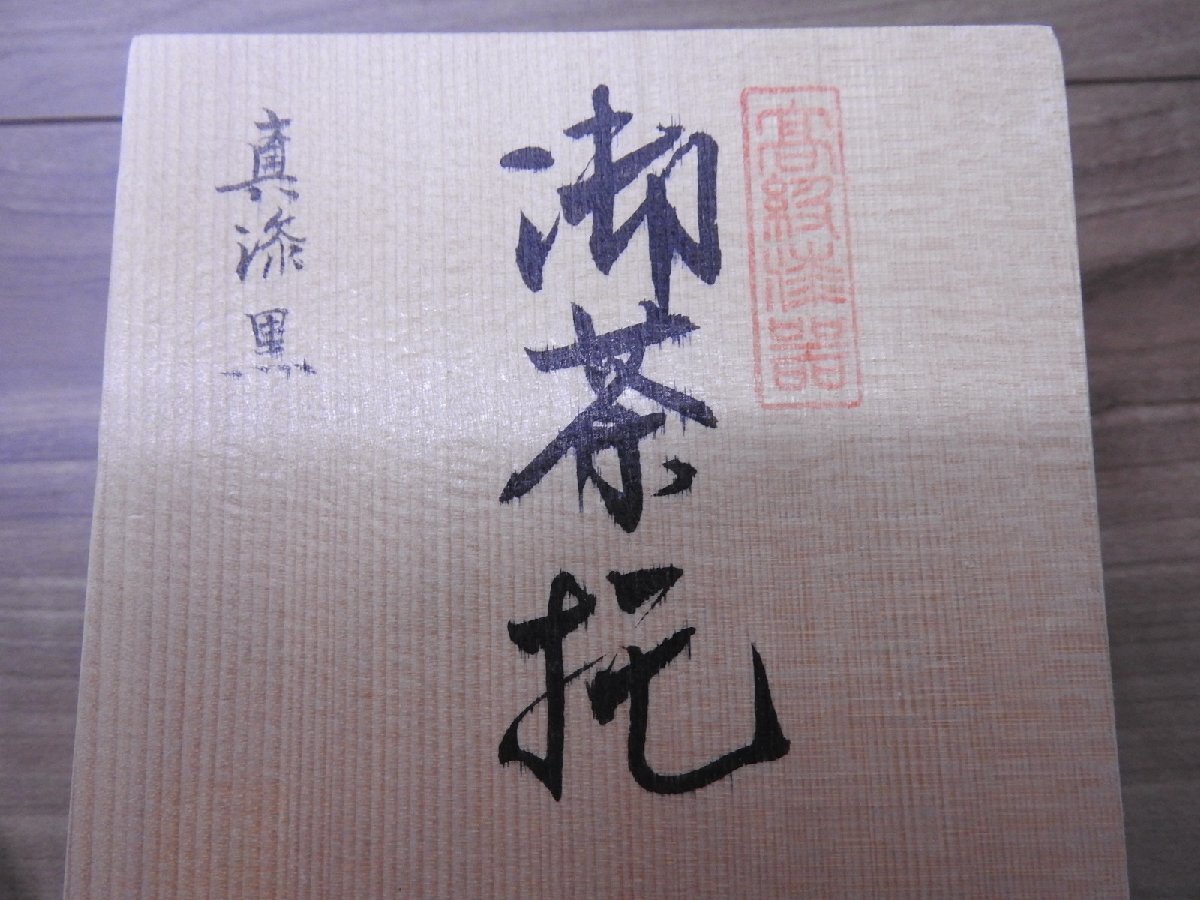 高級漆器
御茶托
真漆黒